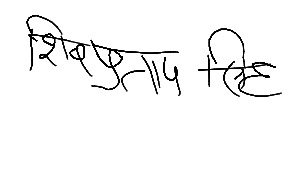 शिवप्रताप सिंह